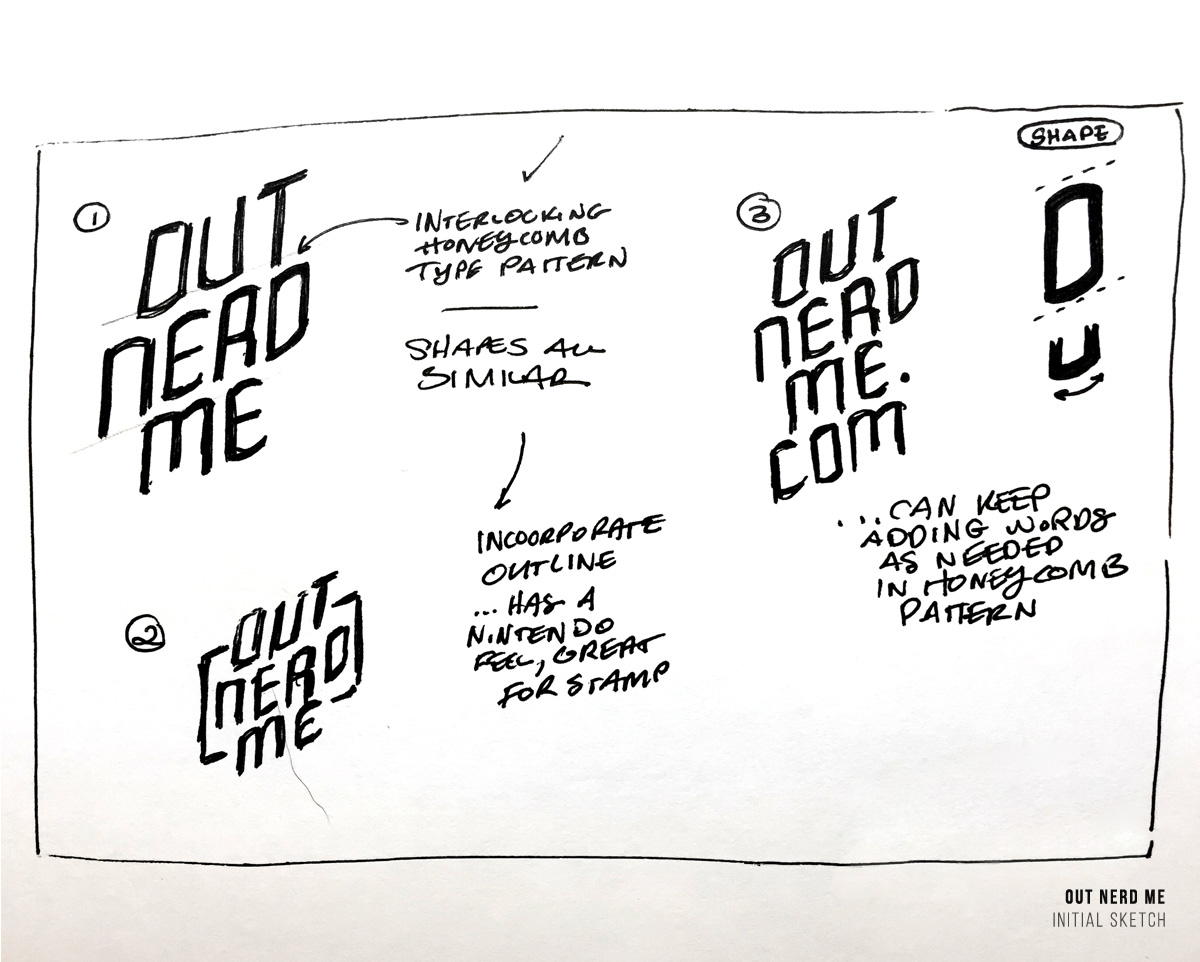 1
OUT
NERD
ME
INTERLOCKING
HONEYCOMB
TYPE PATTERN
SHAPES ALL
SIMILAR
2
OUT
NERD
ME
INCOORPORATE
OUTLINE
... HAS A
NINTENDO
FEEL, GREAT
FOR STAMP
3
OUT
NERD
ME.
COM
SHAPE
O
U
...CAN KEEP
ADDING WORDS
AS NEEDED
IN HONEYCOMB
PATTERN
OUT NERD ME
INITIAL SKETCH